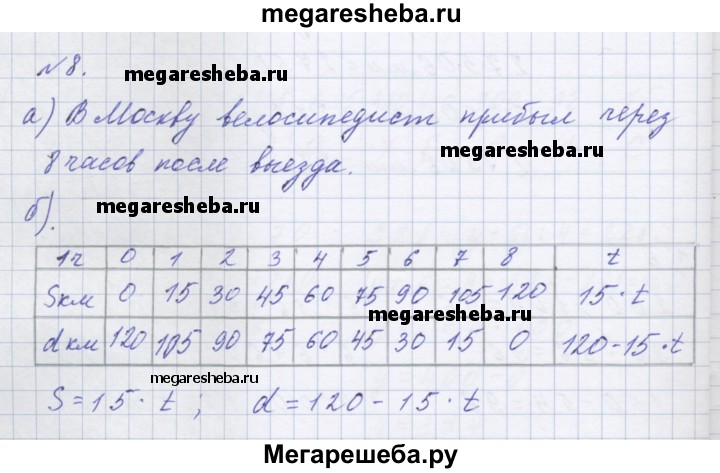 megaresheba.ru
№8. megaresheba.ru
а) В Москву велосипедист прибыл через
8 часов после выезда. megaresheba.ru
б). megaresheba.ru
1ч 0 1 2 3 4 5 6 7 8 t
Sкм 0 15 30 45 60 75 90 105 120 15·t
megaresheba.ru
dкм 120 105 90 75 60 45 30 15 0 120-15·t
megaresheba.ru
S=15·t; d=120-15·t
Мегарешеба.ру